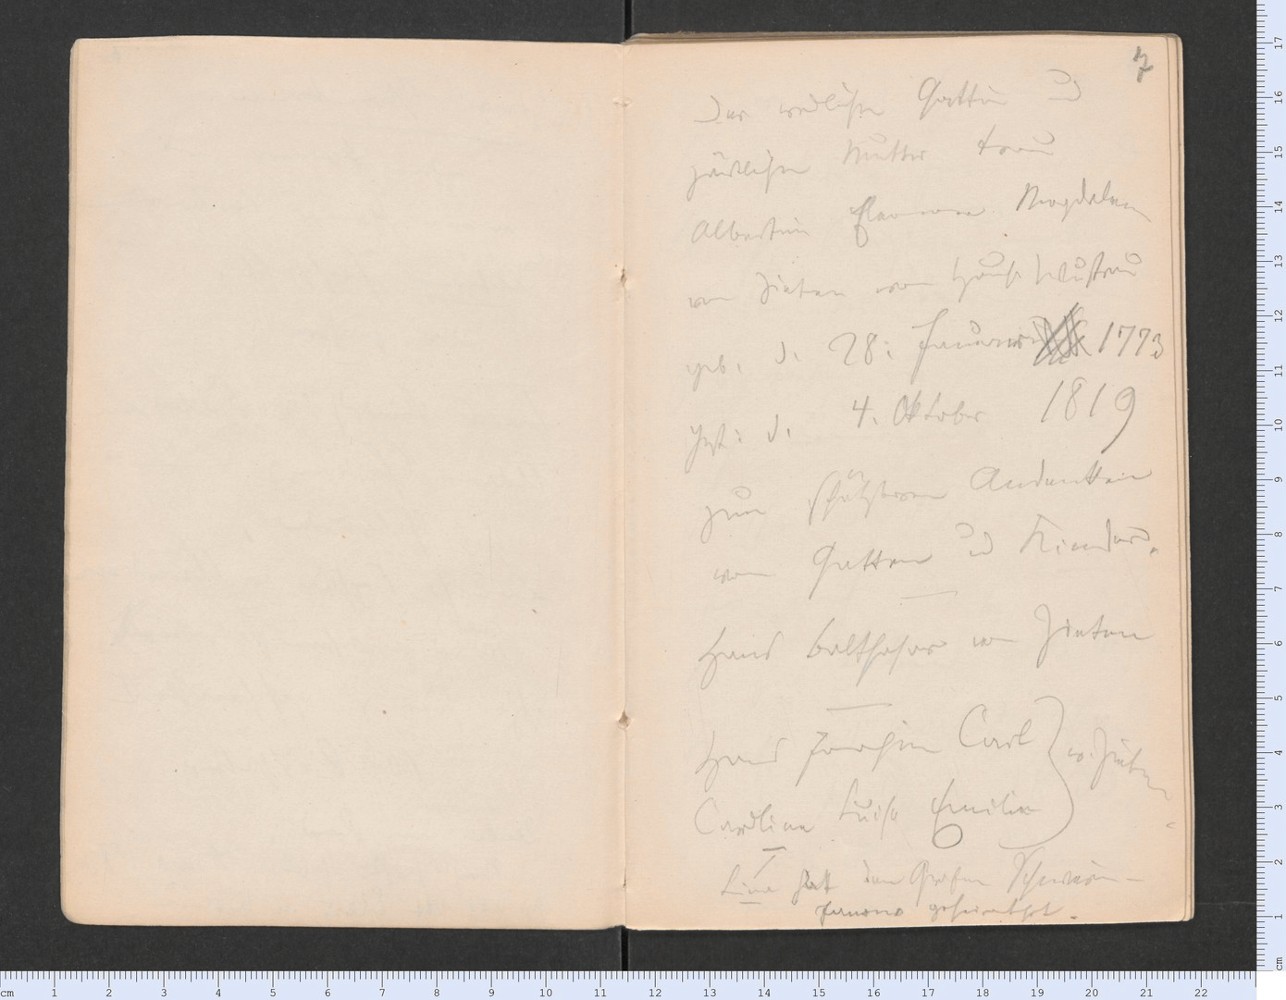 7
Der redlichen Gattin u
zärtlichen Mutter Frau
Albertine Eleonore Magdalena
von Zieten vom Hause Wustrau
geb. d. 28: Januar 1773
gest: d. 4. Oktober 1819
zum Andenken
vom Gatten und Kindern.
Hans Balthasar von Zieten
Hans Joachim Carl
v. Zieten
Caroline Luise Emilie
Line hat den Grafen Schwerin
geheirathet.